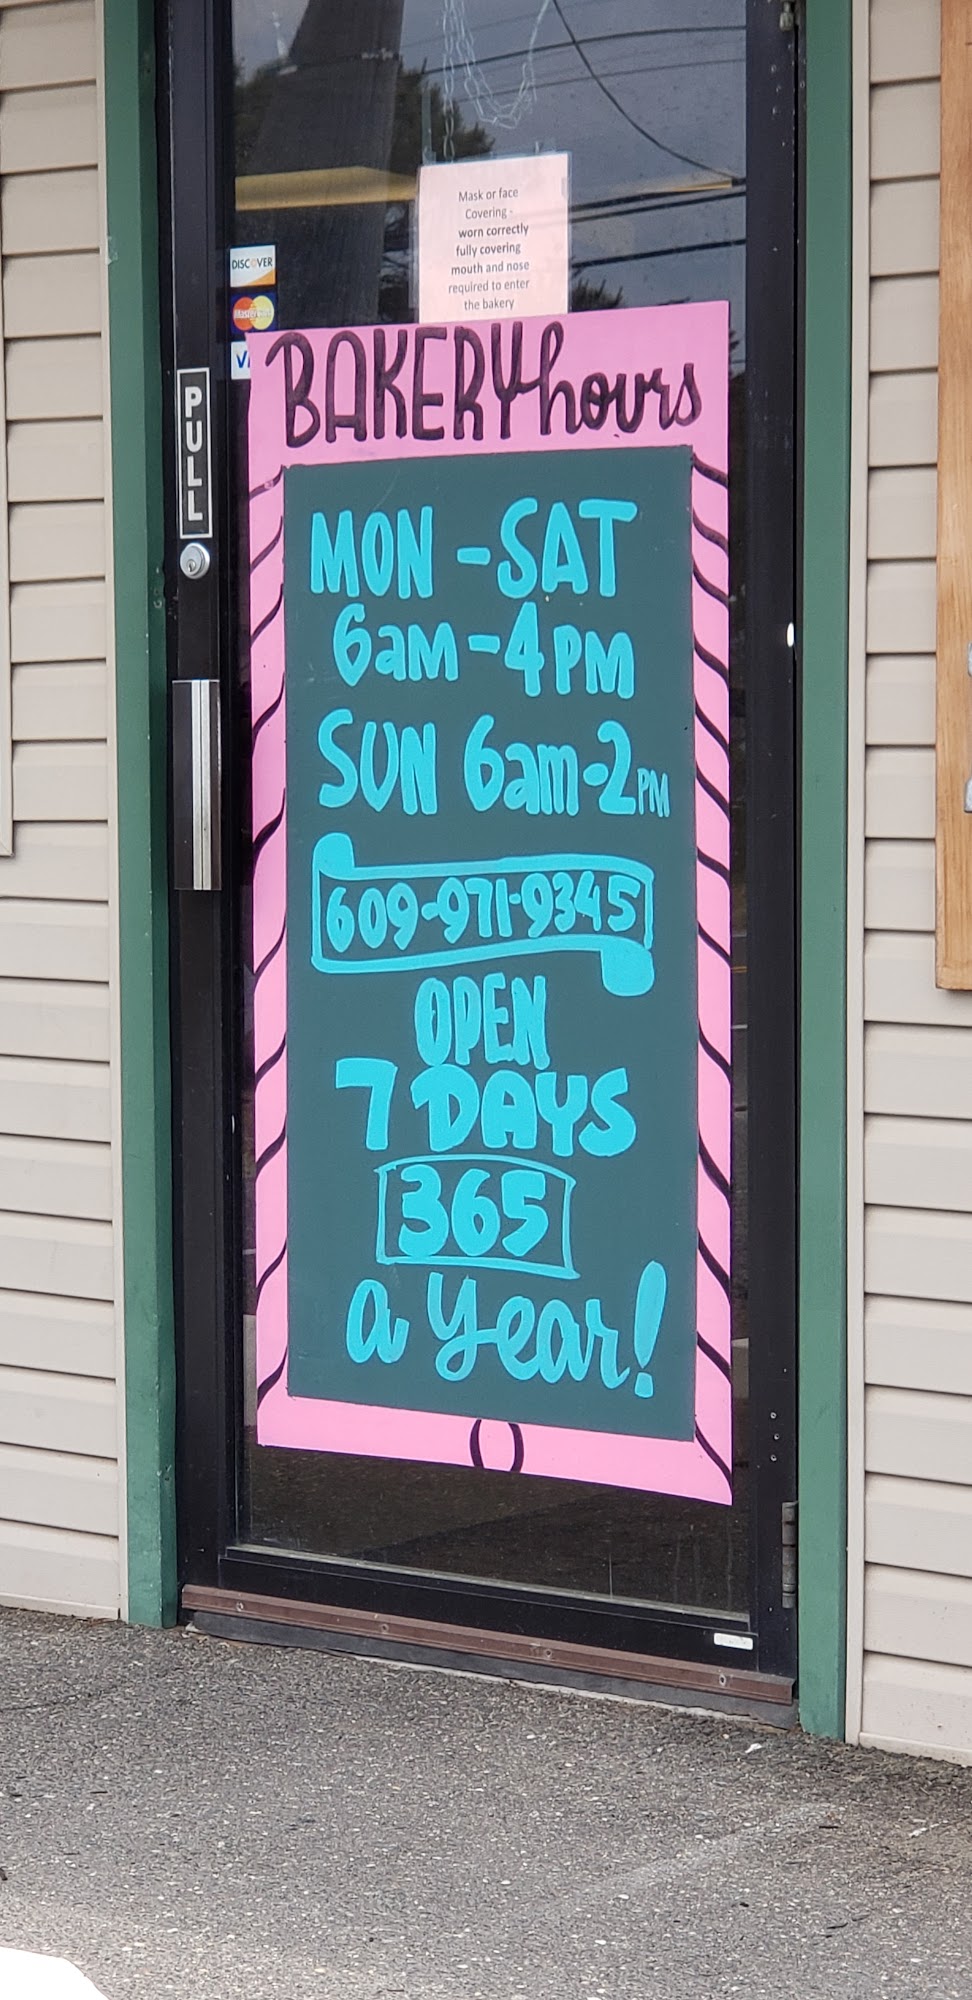 Mask or face
Covering -
worn correctly
fully covering
mouth and nose
required to enter
the bakery
DISCOVER
MasterCard
PULL
BAKERY hours
MON - SAT
6am - 4PM
SUN 6am - 2PM
609-971-9345
OPEN
7 DAYS
365
a year!